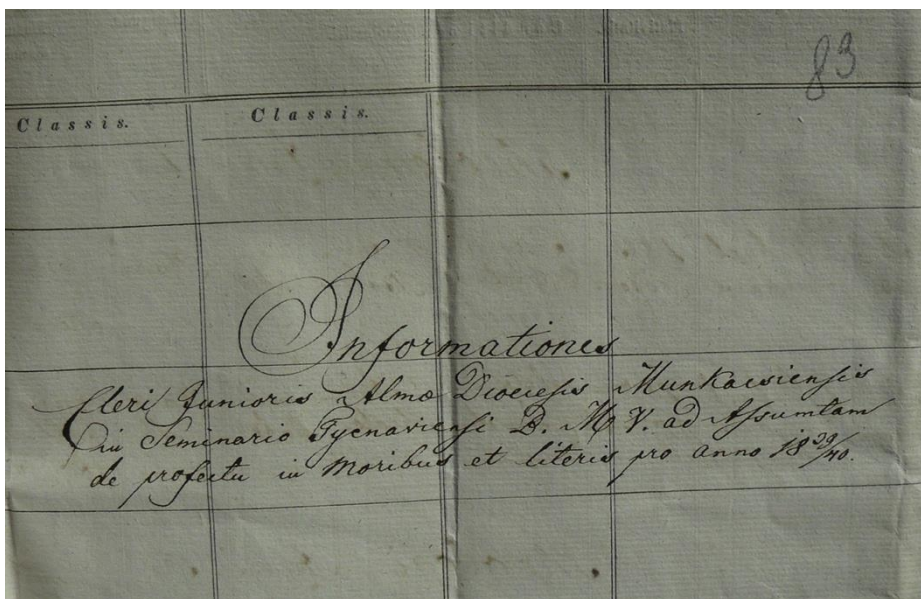 83
Classis. Classis.
Informationes
Cleri Junioris Almæ Diocesis Munkacsiensis
in Seminario Tyrnaviensi B. M. V. ad Assumtam
de profectu in moribus et literis pro anno 1839/40.